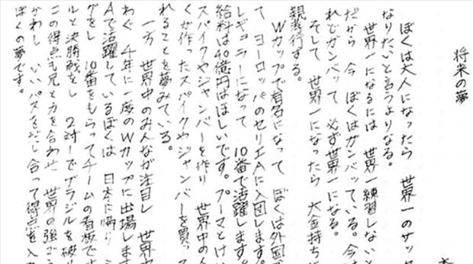 将来の夢
ぼくは大人になったら 世界一のサッ
なりたいと言うよりなる。
世界一になるには 世界一練習しないと
だから 今 ぼくはガンバッている。今
れどガンバッて 必ず世界一になる。
そして 世界一になったら 大金持ち
親孝行する。
Wカップで有名になって ぼくは外国
て ヨーロッパのセリエAに入団します。
レギュラーになって 10番で活躍します。
給料は40億円はほしいです。プーマとけ
スパイクやジャンバーを作り 世界中の
くが作ったスパイクやジャンバーを買
れることを夢みている。
一方 世界中のみんなが注目し 世界
わぐ 4年に一度のWカップに出場しま
Aで活躍しているぼくは 日本に帰り
グをし 10番をもらってチームの看板です
ルと決勝戦をし 2対1でブラジルを破り
この得点も兄と力を合わせ 世界の強ごう
かわし いいパスをだし合って得点を入
ぼくの夢です。